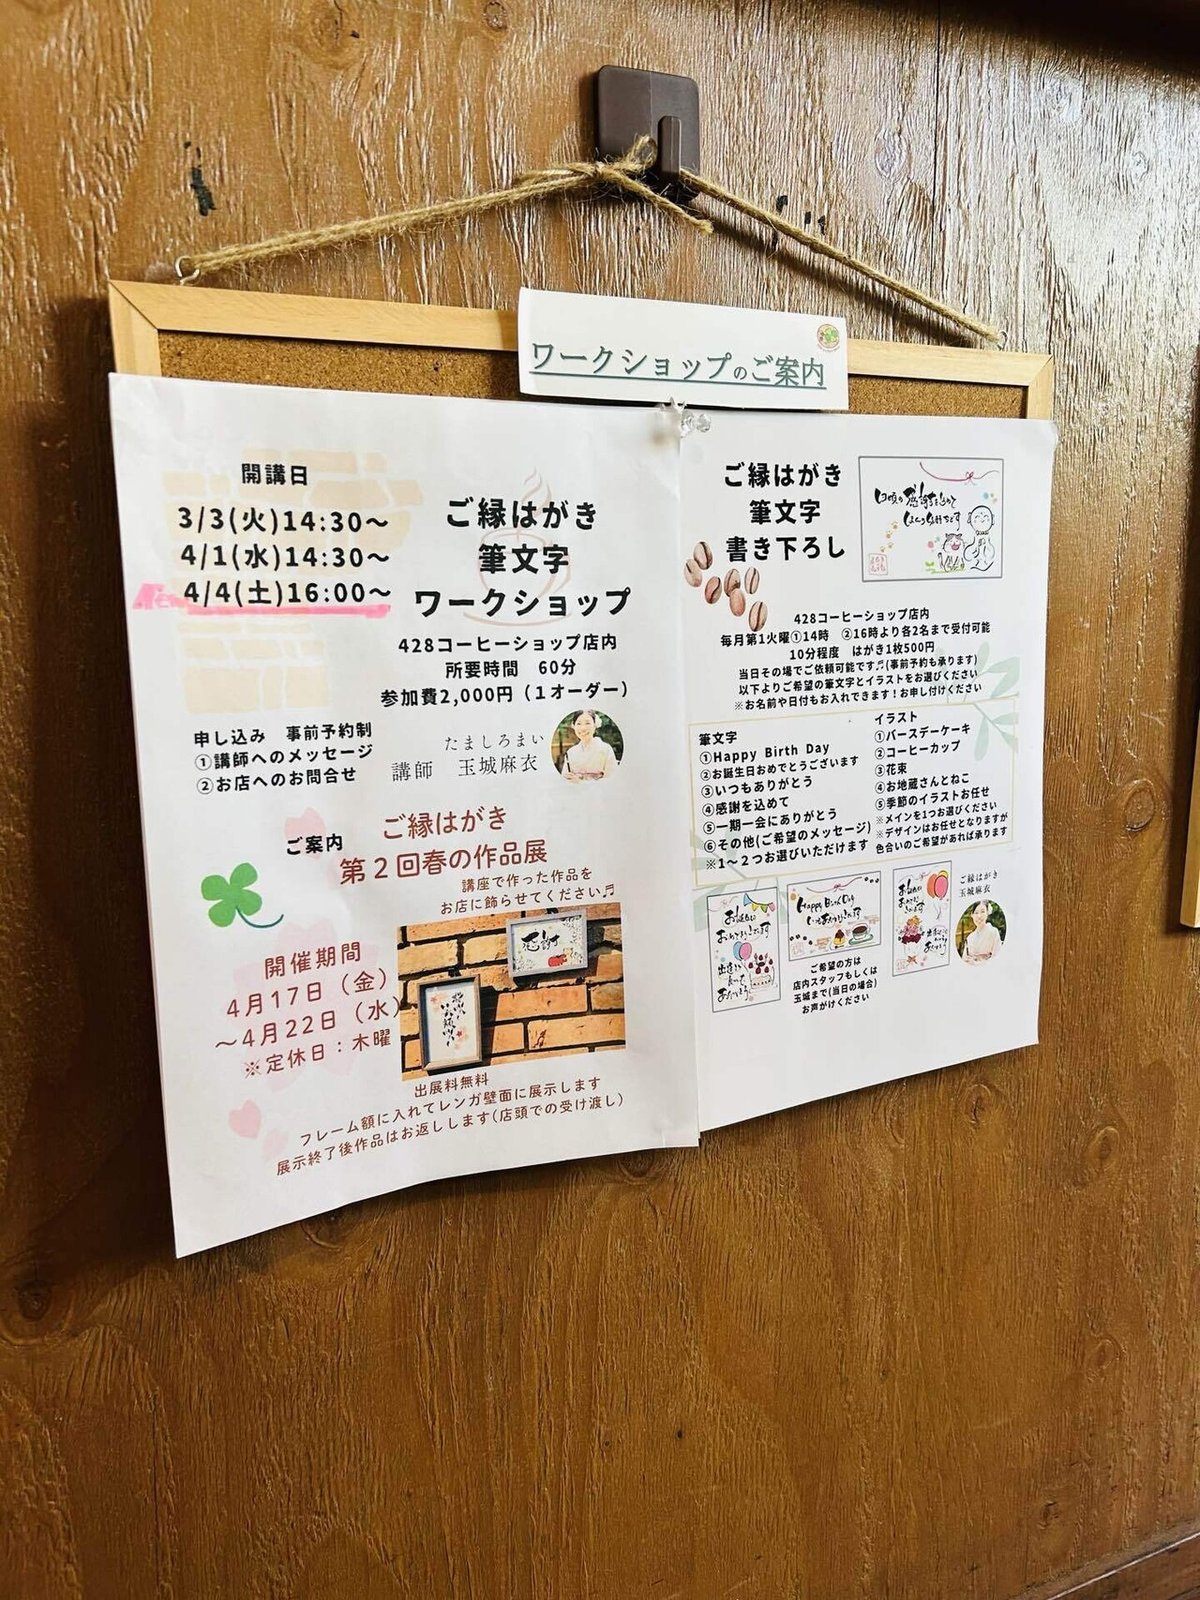 ワークショップのご案内
開講日
3/3(火)14:30～
4/1(水)14:30～
4/4(土)16:00～
ご縁はがき
筆文字
ワークショップ
428コーヒーショップ店内
所要時間 60分
参加費2,000円（1オーダー）
申し込み 事前予約制
①講師へのメッセージ
②お店へのお問合せ
たましろまい
講師 玉城麻衣
ご案内
ご縁はがき
第2回春の作品展
講座で作った作品を
お店に飾らせてください♬
開催期間
4月17日（金）
～4月22日（水）
※定休日：木曜
感謝
出展料無料
フレーム額に入れてレンガ壁面に展示します
展示終了後作品はお返しします(店頭での受け渡し)
ご縁はがき
筆文字
書き下ろし
日頃の感謝を込めて
428コーヒーショップ店内
毎月第1火曜①14時 ②16時より各2名まで受付可能
10分程度 はがき1枚500円
当日その場でご依頼可能です♬(事前予約も承ります)
以下よりご希望の筆文字とイラストをお選びください
※お名前や日付もお入れできます！お申し付けください
筆文字
①Happy Birth Day
②お誕生日おめでとうございます
③いつもありがとう
④感謝を込めて
⑤一期一会にありがとう
⑥その他(ご希望のメッセージ)
※1～2つお選びいただけます
イラスト
①バースデーケーキ
②コーヒーカップ
③花束
④お地蔵さんとねこ
⑤季節のイラストお任せ
※メインを1つお選びください
※デザインはお任せとなりますが
色合いのご希望があれば承ります
お誕生日
おめでとう
ございます
出逢って
くれて
ありがとう
Happy Birth Day
いつもありがとう
ご希望の方は
店内スタッフもしくは
玉城まで(当日の場合)
お声がけください
ご縁はがき
玉城麻衣